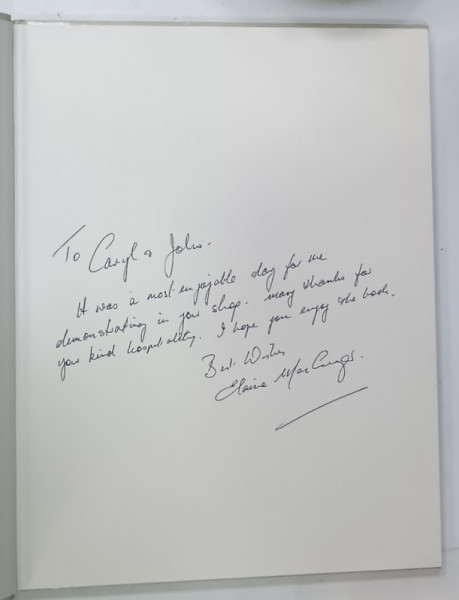 To Caryl & John.
It was a most enjoyable day for me
demonstrating in your shop. Many thanks for
your kind hospitality. I hope you enjoy the book.
Best Wishes
Elaine